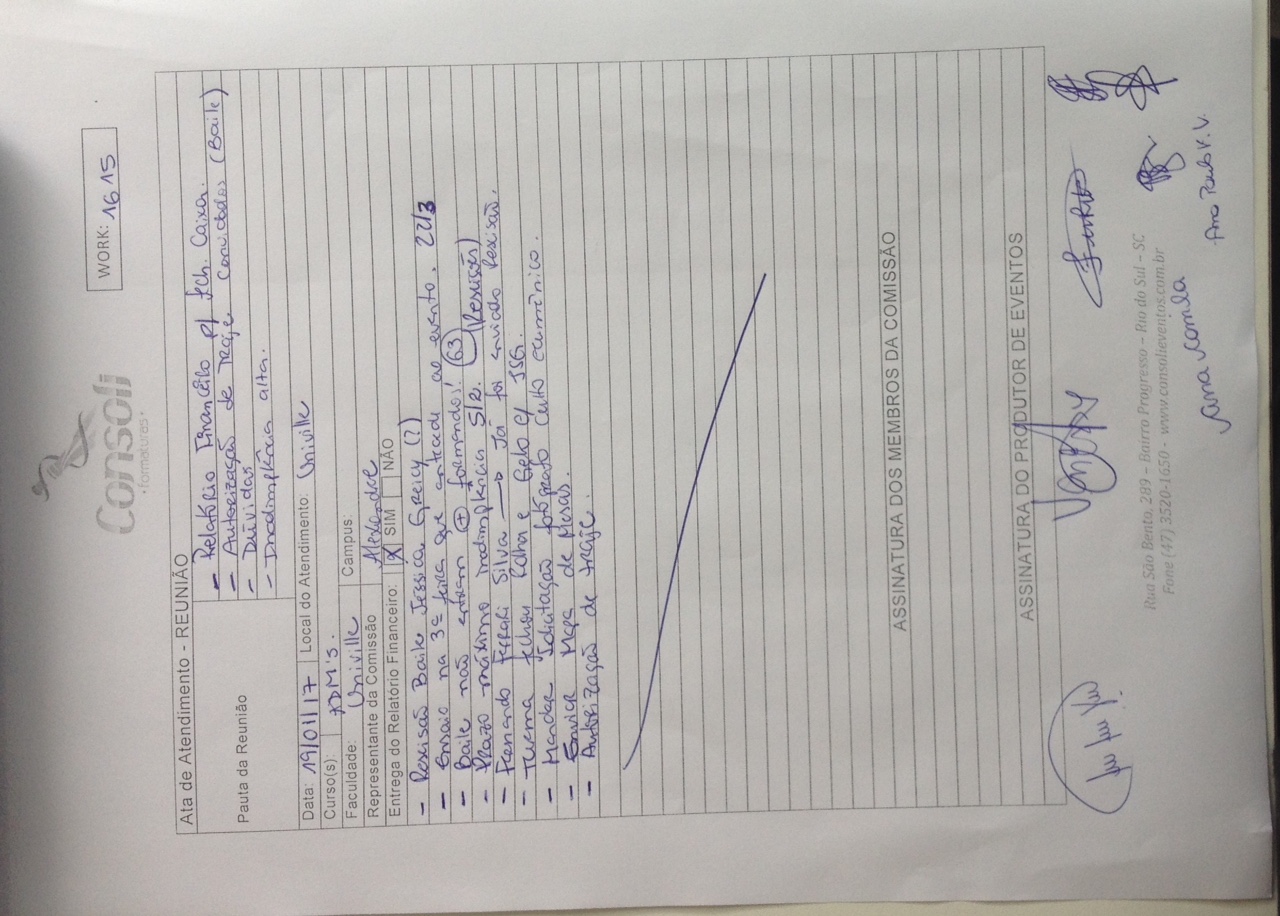 Consoli
•formaturas•
WORK: 1615
Ata de Atendimento - REUNIÃO
Pauta da Reunião
- Relatório Financeiro p/ fch. Caixa.
- Autorização de Traje Convidados (Baile)
- Dúvidas
- Inadimplência alta.
Data: 19/01/17 Local do Atendimento: Univille
Curso(s): ADM'S.
Faculdade: Univille Campus:
Representante da Comissão Alexandre
Entrega do Relatório Financeiro: X SIM NÃO
- Rescisão Baile Jessica Greicy (?)
- Ensaio na 3ª feira que antecede ao evento. 22/3
- Baile não entram + formandos! (63)
- Prazo máximo inadimplência 5/2. (Rescisão)
- Fernando Ferrari Silva → Já foi enviado Rescisão.
- Turma fechou Rolha e Gelo c/ JSG.
- Mandar solicitação fotógrafo culto ecumênico.
- Enviar Mapa de Mesas.
- Autorização de traje.
ASSINATURA DOS MEMBROS DA COMISSÃO
ASSINATURA DO PRODUTOR DE EVENTOS
Rua São Bento, 289 – Bairro Progresso – Rio do Sul – SC
Fone (47) 3520-1650 - www.consolieventos.com.br
Ana Camila
Ana Paula V.V.